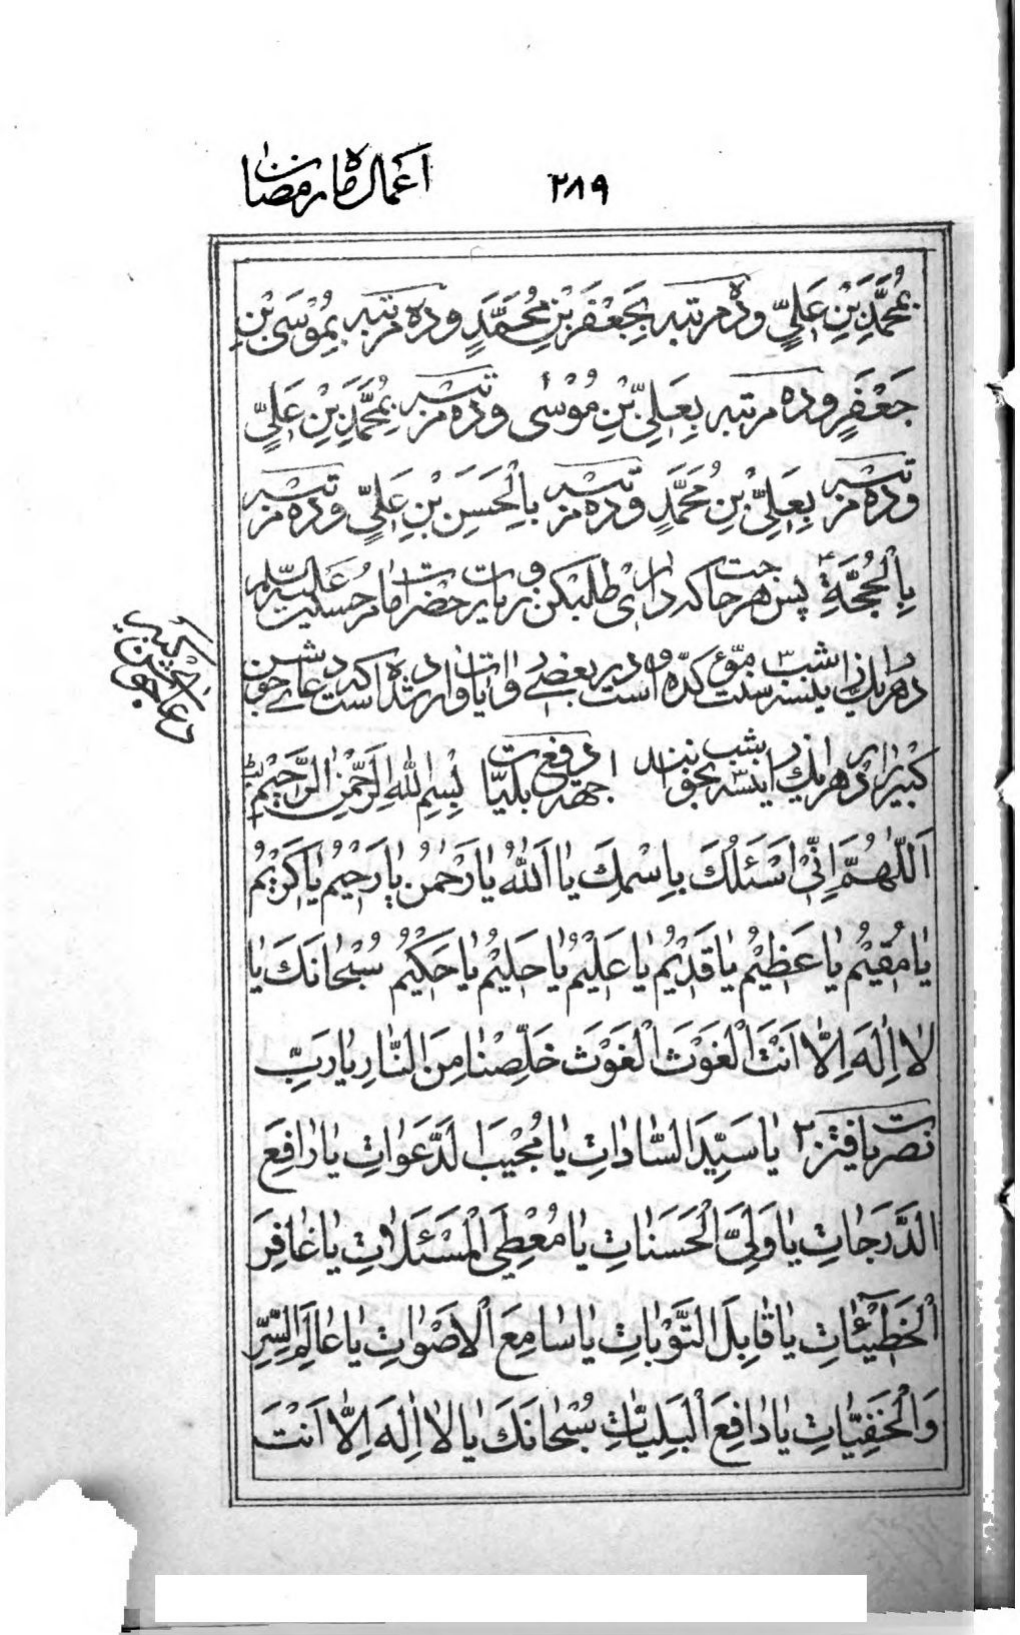 اَعمال ماه رمضان ۲۸۹
بِمُحَمَّدِ بْنِ عَلِیٍّ و ده مرتبه بِجَعْفَرِ بْنِ مُحَمَّدٍ و ده مرتبه بِمُوْسَی بْنِ
جَعْفَرٍ و ده مرتبه بِعَلِیِّ بْنِ مُوْسٰی و ده مرتبه بِمُحَمَّدِ بْنِ عَلِیٍّ
و ده مرتبه بِعَلِیِّ بْنِ مُحَمَّدٍ و ده مرتبه بِالْحَسَنِ بْنِ عَلِیٍّ و ده مرتبه
بِالْحُجَّةِ پس هر حاجت که داری طلب کن و زیارت حضرت امام حسین علیه السلام
در هر یک از این سه شب سنّت مؤکّده است و در بعضی روایات وارد شده است که دعای جوشن
کبیر را در هر یک از این سه شب بخوانند جهة دفع بلیّات بِسْمِ اللّٰهِ الرَّحْمٰنِ الرَّحِیْمِ
دعاء جوشن کبیر
اَللّٰهُمَّ اِنِّیْ اَسْئَلُكَ بِاسْمِكَ یٰا اَللّٰهُ یٰا رَحْمٰنُ یٰا رَحِیْمُ یٰا كَرِیْمُ
یٰا مُقِیْمُ یٰا عَظِیْمُ یٰا قَدِیْمُ یٰا عَلِیْمُ یٰا حَلِیْمُ یٰا حَكِیْمُ سُبْحٰانَكَ یٰا
لاٰ اِلٰهَ اِلاّٰ اَنْتَ الْغَوْثَ الْغَوْثَ خَلِّصْنٰا مِنَ النّٰارِ یٰا رَبِّ
۲ یٰا سَیِّدَ السّٰادٰاتِ یٰا مُجِیْبَ الدَّعَوٰاتِ یٰا رٰافِعَ
الدَّرَجٰاتِ یٰا وَلِیَّ الْحَسَنٰاتِ یٰا مُعْطِیَ الْمَسْئَلاٰتِ یٰا غٰافِرَ
الْخَطٖیْئٰاتِ یٰا قٰابِلَ التَّوْبٰاتِ یٰا سٰامِعَ الْاَصْوٰاتِ یٰا عٰالِمَ السِّرِّ
وَ الْخَفِیّٰاتِ یٰا دٰافِعَ الْبَلِیّٰاتِ سُبْحٰانَكَ یٰا لاٰ اِلٰهَ اِلاّٰ اَنْتَ